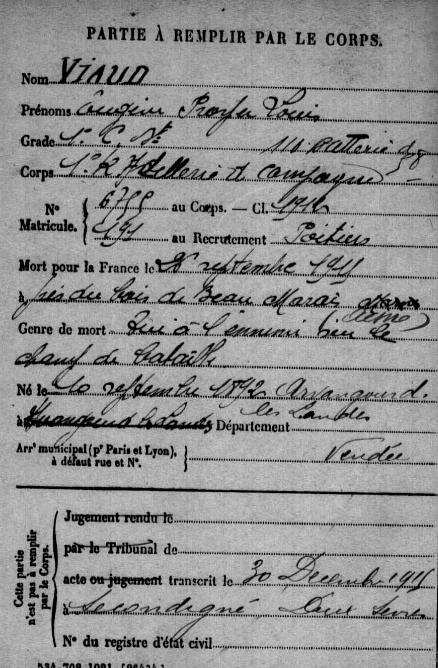 PARTIE À REMPLIR PAR LE CORPS.
Nom VIAUD
Prénoms Eugène Louis
Grade 1e C. 
Corps 1e R d'Artillerie de campagne
N° Matricule. 6755 au Corps. — Cl. 1912
191 au Recrutement Poitiers
Mort pour la France le septembre 1915
à près du bois de Beau Marais Aisne
Genre de mort Tué à l'ennemi sur le
champ de bataille
Né le 10 septembre 1892
à Département
les Landes
Arrt municipal (pr Paris et Lyon), à défaut rue et N°. Vendée
Cette partie n'est pas à remplir par le Corps.
Jugement rendu le
par le Tribunal de
acte ou jugement transcrit le 30 Décembre 1915
à Secondigné Deux Sèvres
N° du registre d'état civil
534-708-1921. [26434]